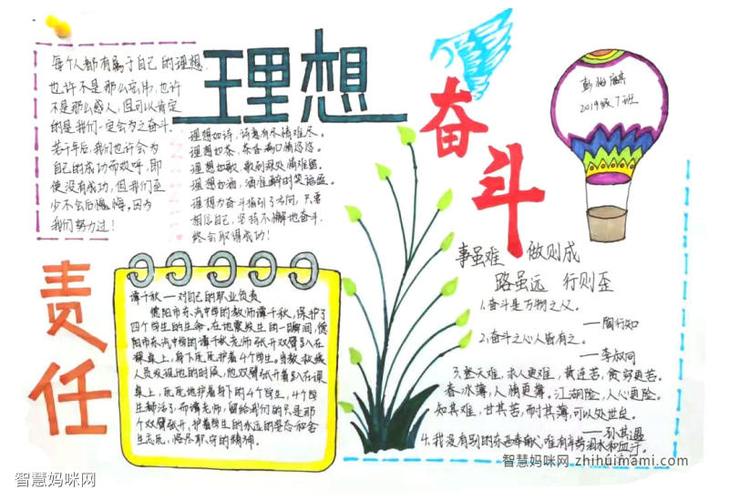 理想
奋斗
责任
每个人都有属于自己的理想,
也许不是那么宏伟,也许
不是那么感人,但可以肯定
的是我们一定会为之奋斗.
若干年后,我们也许会为
自己的成功而欢呼,即
使没有成功,但我们至
少不会后悔,因为
我们努力过!
理想如诗,诗意有尽情难尽.
理想如茶,
理想如歌,
理想如酒,
理想为奋斗指引了方向,只要
相信自己,坚持不懈地奋斗.
终会取得成功!
2019级7班
谭千秋——对自己的职业负责
德阳市东汽中学的教师谭千秋,保护了
四个学生的生命.在地震发生的一瞬间,德
阳市东汽中学的谭千秋老师张开双臂趴在
课桌上,身下死死护着4个学生。当救援
人员发现他的时候,他双臂张开着趴在课
桌上,死死地护着身下的4个学生,4个学
生都活了.而谭老师,留给我们的只是那
个双臂张开,护着学生的永远的姿态和舍
生忘死,恪尽职守的精神.
事虽难 做则成
路虽远 行则至
1.奋斗是万物之父.
——陶行知
2.奋斗之心人皆有之.
——李叔同
3.登天难,求人更难,黄连苦,贫穷更苦.
春冰薄,人情更薄,江湖险,人心更险.
知其难,甘其苦,耐其薄,可以处世矣.
4.我没有别的东西奉献,唯有辛劳泪水和血汗.
智慧妈咪网 zhihuimami.com
智慧妈咪网